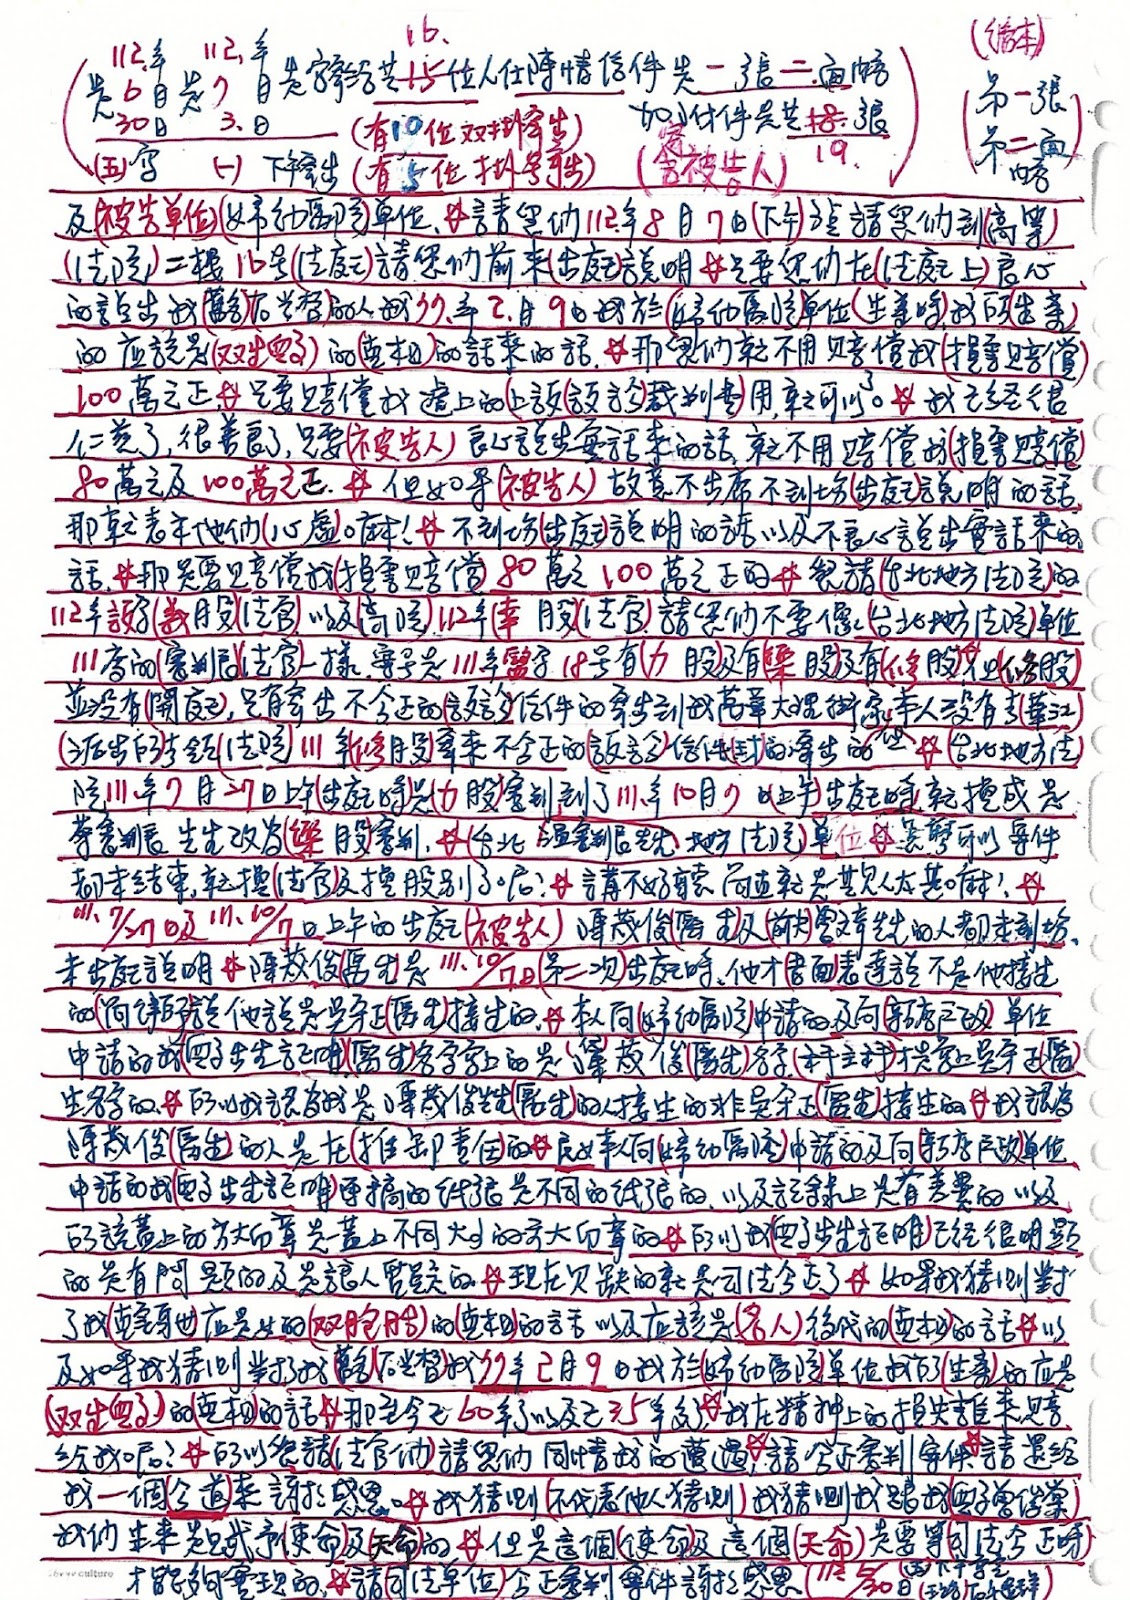 (繕本)
16.
112.年 112.年
是6月是7月是寄給共15位人住陳情信件是一張二面內容
第一張
30日 3.日 (有10位双掛寄出) 加附件是共18張
第二面
(五)寫 (一) 下午寄出 (有5位掛号寄出) (含被告人) 19.
內容
及(被告單位)(婦幼醫院)單位、請您們112年8月7日(下午)請您們到(高等
(法院)二樓16号(法庭)請您們前來(出庭)說明 只要您們在(法庭上)良心
的說出我(舊)的人我77.年2.月9日我於(婦幼醫院單位(生產時)我所(生產)
的應該是(双生兒子)的(真相)的話來的話、那您們就不用賠償我(損害賠償)
100萬之正、只要賠償我遞上的(上訴(訴訟)裁判費)用,就可以了。我已經很
仁慈了,很善良了,只要(被告人)良心說出實話來的話,就不用賠償我(損害賠償)
80萬之及100萬之正、但如果(被告人)故意不出席不到場(出庭)說明的話、
那就表示他們(心虛)嘛! 不到場(出庭)說明的話以及不良心說出實話來的
話、那是要賠償我(損害賠償)80萬之100萬之正的 敬請(台北地方法院)的
112年訴字(義股)(法官)以及(高院)112年(孝股)(法官)請您們不要像(台北地方法院)單位
111年的(審判長)(法官)一樣、案号是111年醫字18号有(力股)及有(樂股)及有(修股)但(修股)
並沒有(開庭),只有寄出不公正的(訴訟)信件的寄出到我萬華大理街家本人沒有去(華江)
派出所)去領(法院)111年(修股)寄來不公正的(訴訟)信件(封)的寄出的 (台北地方法
院111年7月27日上午(出庭)時是(力股)審判到了111年10月7日(上午)出庭時就換成是
審判長先生改為(樂股)審判、(台北地方法院)單位 怎麼可以案件
都未結束,就換(法官)及換股別了呢? 講不好聽簡直就是欺人太甚嘛!
111.7/27日及111.10/7日上午的出庭(被告人)陳茂俊(醫生)及先生的人都未到場、
未出庭說明 陳茂俊(醫生)是111.10/7日(第二次)出庭時、他才(書面)表達說不是他接生
的(簡律師)說他說是吳守正(醫生)接生的、本人向(婦幼醫院)申請的及向(戶政)單位
申請的我(兒子出生證明(醫生)名字寫上的是(陳茂俊(醫生)名字(主手)才是寫上吳守正(醫
生)名字的、所以我認為我是陳茂俊先生(醫生)的人接生的非吳守正(醫生)接生的 我認為
陳茂俊(醫生)的人是在(推卸責任)的 民女本人向(婦幼醫院)申請的及向(戶政)單位
申請的我(兒子出生證明)連摘的紙張是不同的紙張的、以及記錄上是有差異的以及
所該蓋上的方大印章是蓋上不同大小的方大印章的 所以我(兒子出生證明)已經很明顯
的是有問題的及是讓人質疑的、現在欠缺的就是司法公正了 如果我猜測對
了我(真實身世應是女的(双胞胎)的(真相)的話以及應該是(名人)後代的(真相)的話 以
及如果我猜測對於我(舊)我77年2月9日我於(婦幼醫院)單位我所(生產)的應是
(双生兒子)的(真相)的話 那至今已60年了以及已35年多了 我在精神上的損失誰來賠
給我呢? 所以敬請(法官們)請您們同情我的遭遇、請公正審判案件、請還給
我一個(公道)來謝謝感恩。我猜測(不代表他人猜測)我猜測我跟我(兒子)
我們生來是賦予(使命)及(天命)的 但是這個(使命)及這個(天命)是要等司法公正時
才能夠實現的、請(司法單位)公正審判案件謝謝感恩(112. 6/30日